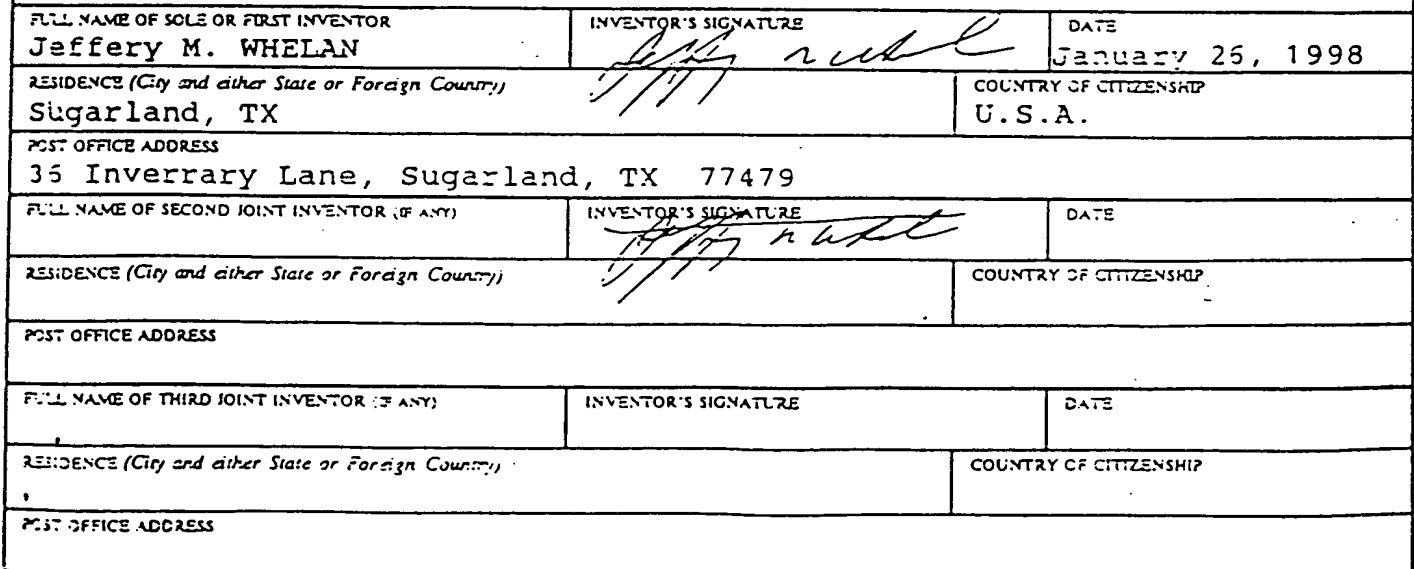 FULL NAME OF SOLE OR FIRST INVENTOR INVENTOR'S SIGNATURE DATE
Jeffery M. WHELAN January 26, 1998
RESIDENCE (City and either State or Foreign Country) COUNTRY OF CITIZENSHIP
Sugarland, TX U.S.A.
POST OFFICE ADDRESS
36 Inverrary Lane, Sugarland, TX 77479
FULL NAME OF SECOND JOINT INVENTOR (IF ANY) INVENTOR'S SIGNATURE DATE
RESIDENCE (City and either State or Foreign Country) COUNTRY OF CITIZENSHIP
POST OFFICE ADDRESS
FULL NAME OF THIRD JOINT INVENTOR (IF ANY) INVENTOR'S SIGNATURE DATE
RESIDENCE (City and either State or Foreign Country) COUNTRY OF CITIZENSHIP
POST OFFICE ADDRESS